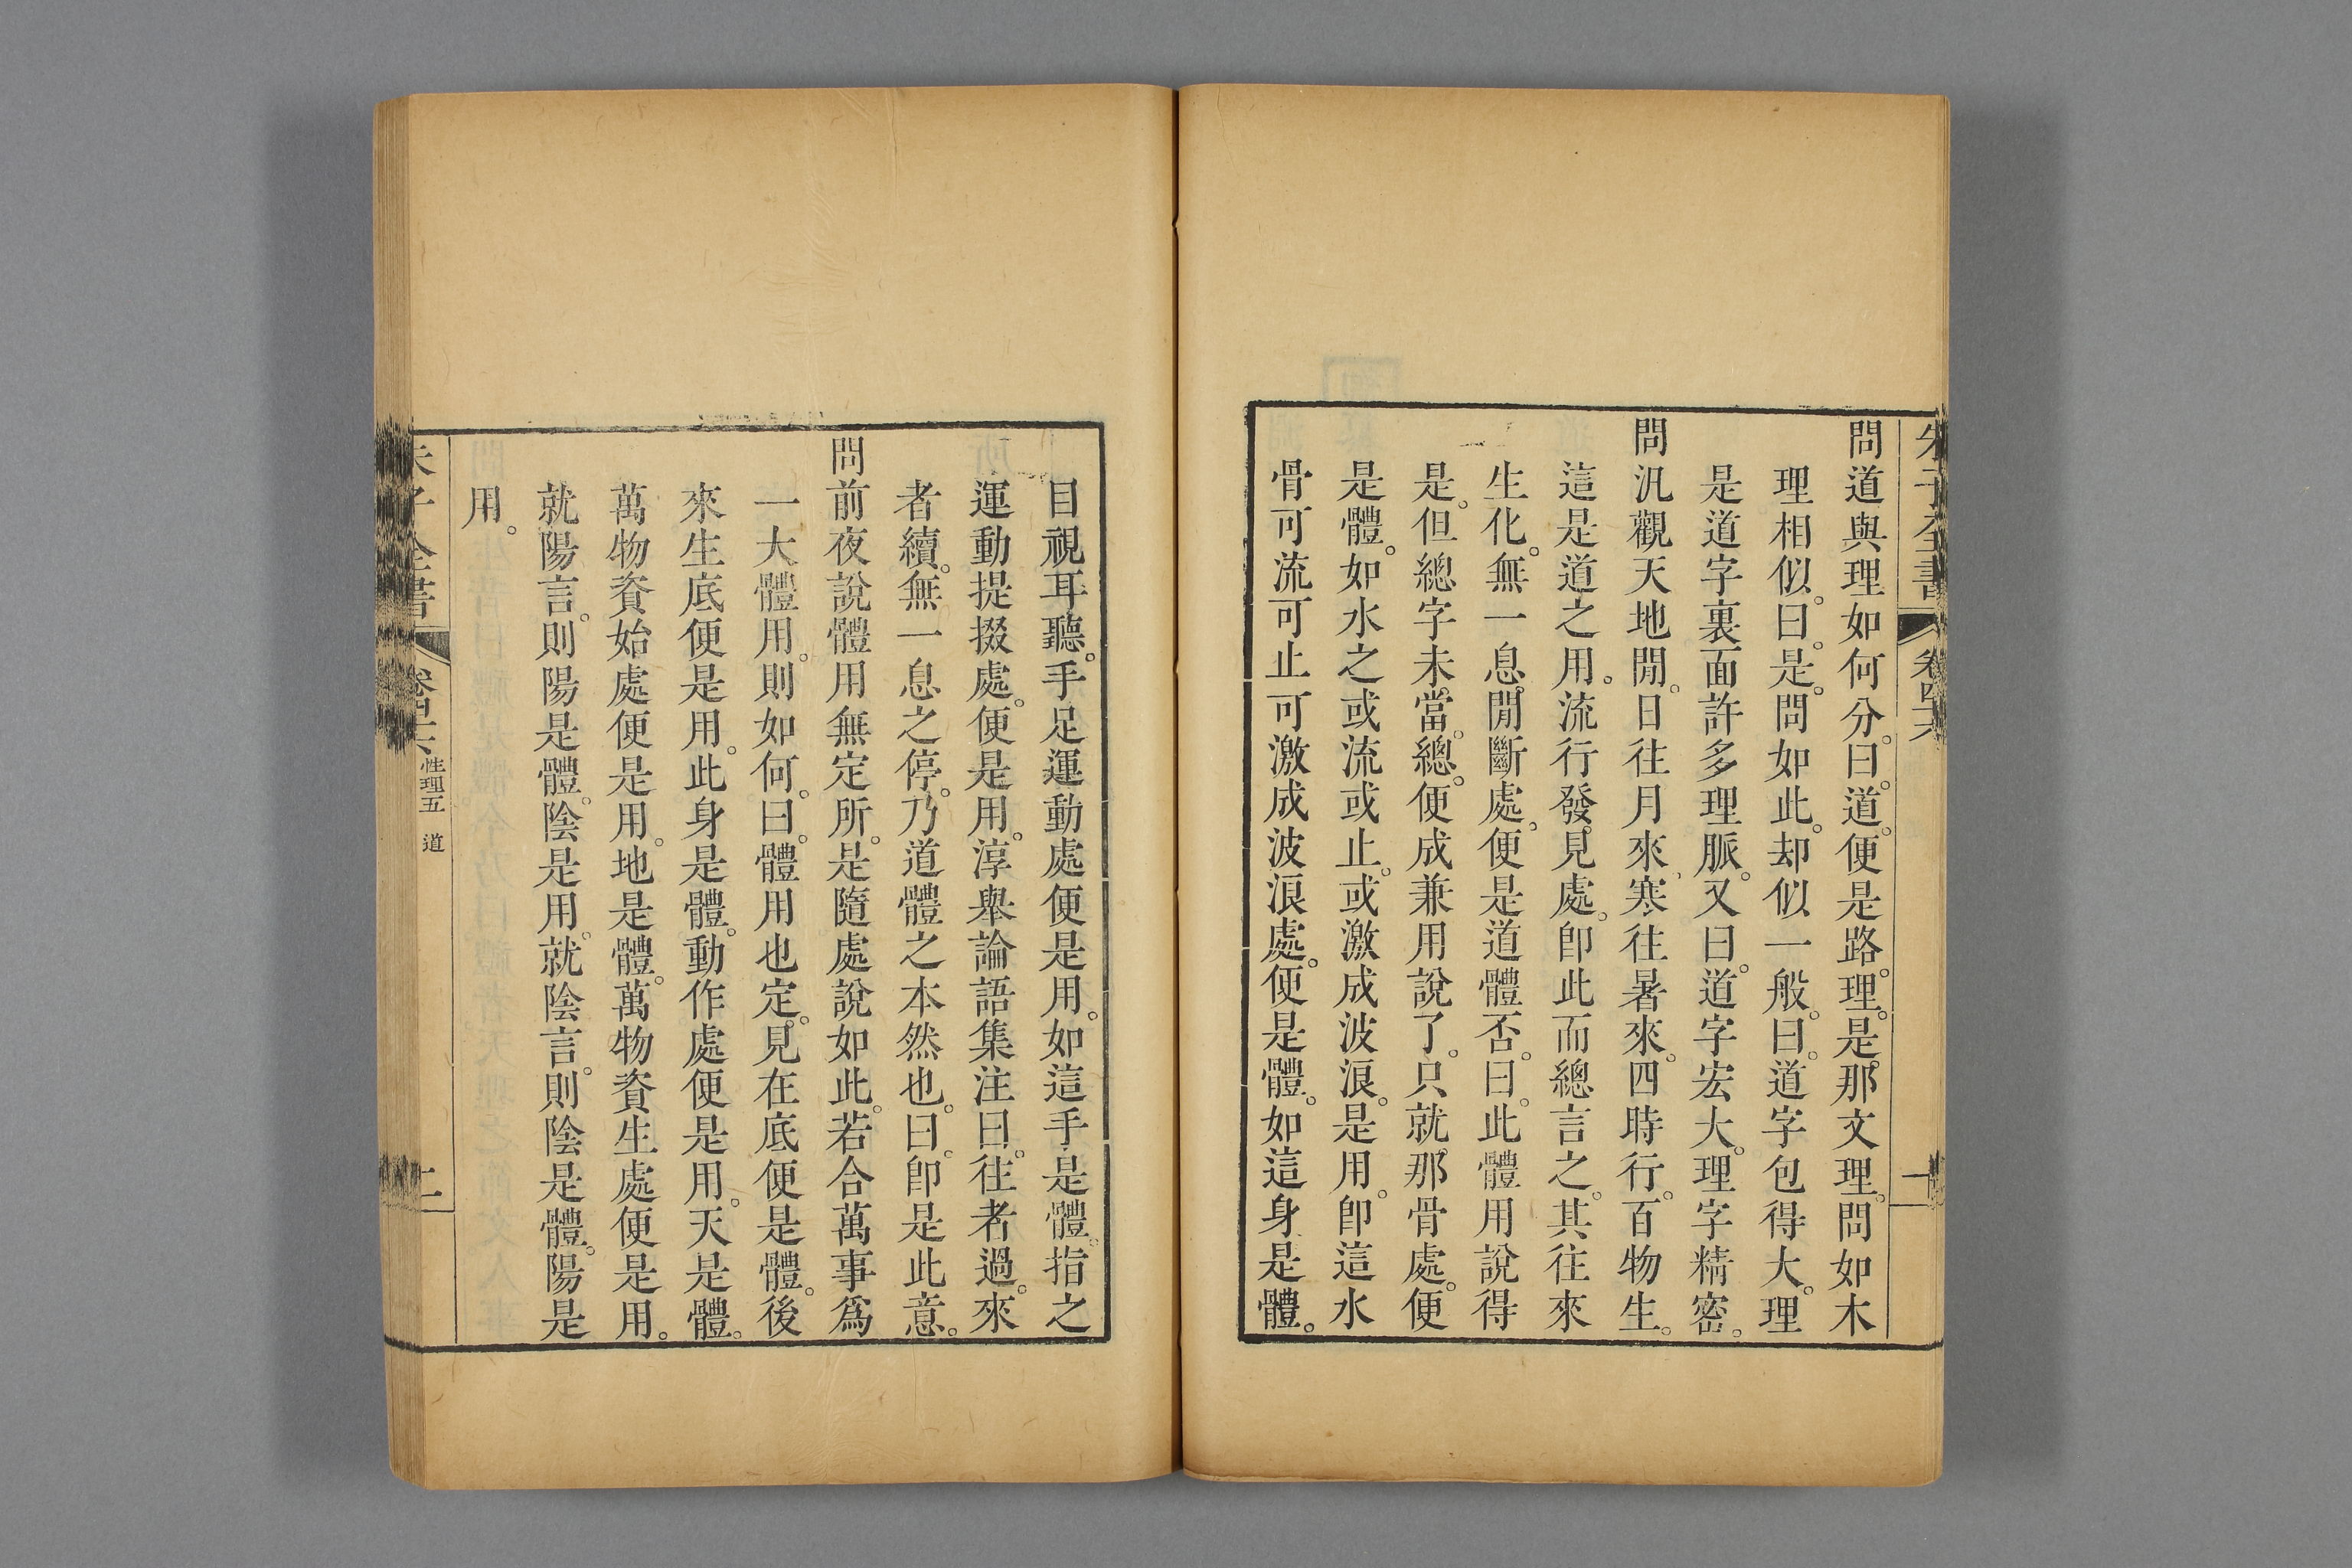 朱子全書 卷四六
問道與理如何分。曰。道。便是路。理。是那文理。問如木
理相似。曰。是。問如此。却似一般。曰。道字包得大。理
是道字裏面許多理脈。又曰。道字宏大。理字精密。
問汎觀天地閒。日往月來。寒往暑來。四時行。百物生。
這是道之用。流行發見處。卽此而總言之。其往來
生化。無一息閒斷處。便是道體否。曰。此體用說得
是。但總字未當。總。便成兼用說了。只就那骨處。便
是體。如水之或流或止。或激成波浪。是用。卽這水
骨可流可止可激成波浪處。便是體。如這身是體。
目視耳聽。手足運動處便是用。如這手是體。指之
運動提掇處。便是用。淳舉論語集注曰。往者過。來
者續。無一息之停。乃道體之本然也。曰。卽是此意。
問前夜說體用無定所。是隨處說如此。若合萬事爲
一大體用。則如何。曰。體用也定。見在底便是體。後
來生底便是用。此身是體。動作處便是用。天是體。
萬物資始處便是用。地是體。萬物資生處便是用。
就陽言。則陽是體。陰是用。就陰言。則陰是體。陽是
用。
朱子全書 卷四六 性理五 道